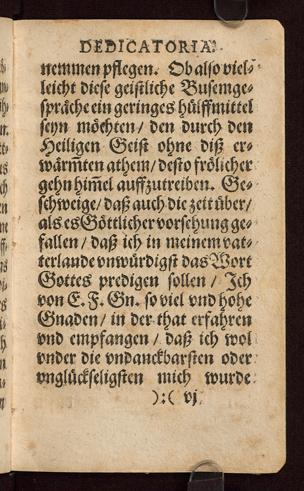 DEDICATORIA.
nemmen pflegen. Ob also viel-
leicht diese geistliche Busemge-
spräche ein geringes hülffmittel
seyn möchten / den durch den
Heiligen Geist ohne diß er-
wärm̃ten athem / desto frölicher
gehn him̃el auffzutreiben. Ge-
schweige / daß auch die zeit über /
als es Göttlicher vorsehung ge-
fallen / daß ich in meinem vat-
terlande vnwürdigst das Wort
Gottes predigen sollen / Ich
von E. F. Gn. so viel vnd hohe
Gnaden / in der that erfahren
vnd empfangen / daß ich wol
vnder die vndanckbarsten oder
vnglückseligsten mich wurde
):( vj